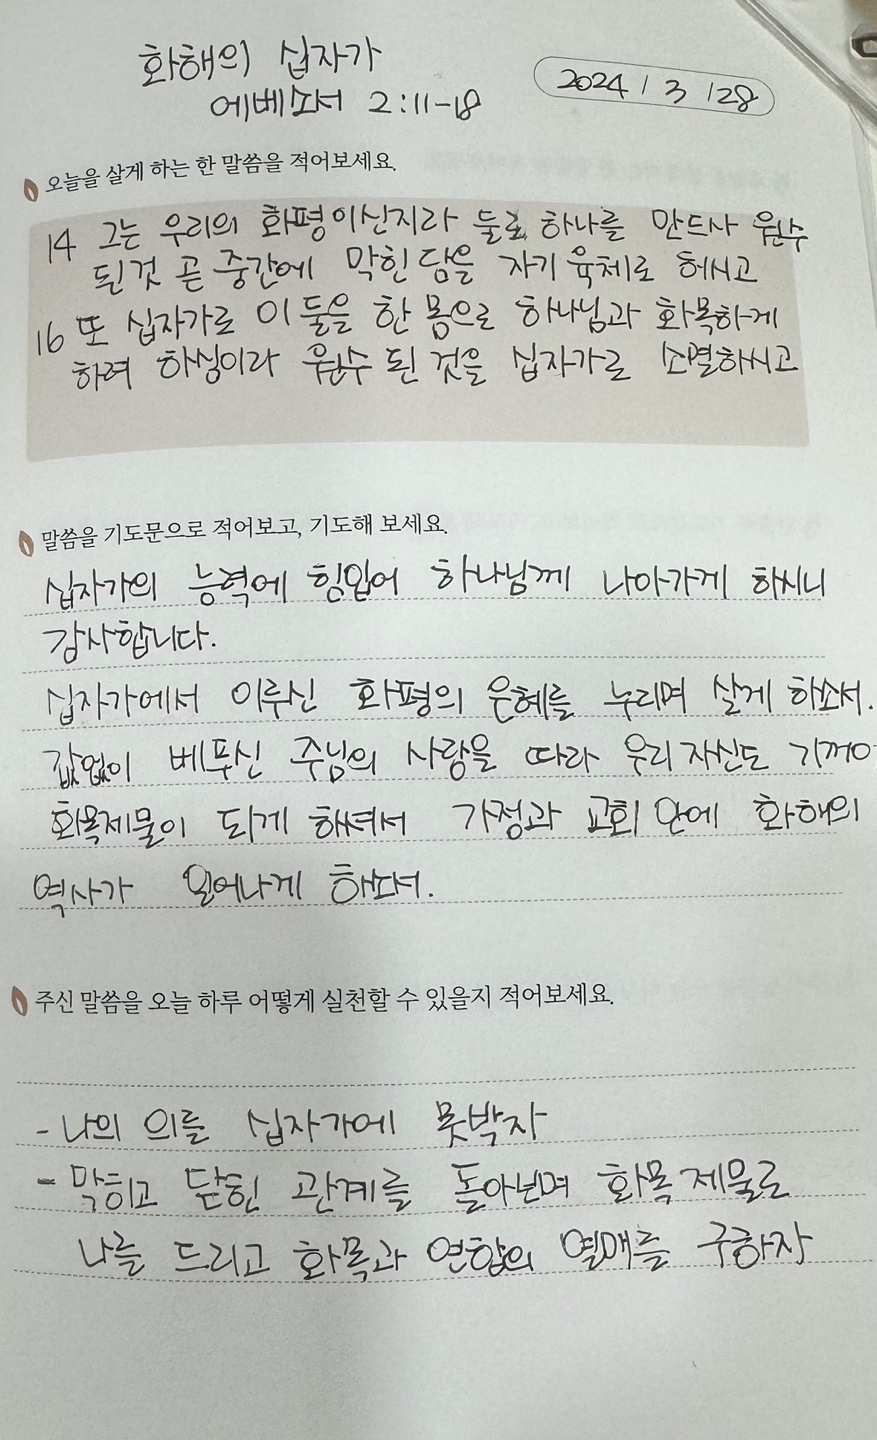 화해의 십자가
에베소서 2:11-18
2024 / 3 / 28
오늘을 살게 하는 한 말씀을 적어보세요.
14 그는 우리의 화평이신지라 둘로 하나를 만드사 원수
된 것 곧 중간에 막힌 담을 자기 육체로 허시고
16 또 십자가로 이 둘을 한 몸으로 하나님과 화목하게
하려 하심이라 원수 된 것을 십자가로 소멸하시고
말씀을 기도문으로 적어보고, 기도해 보세요.
십자가의 능력에 힘입어 하나님께 나아가게 하시니
감사합니다.
십자가에서 이루신 화평의 은혜를 누리며 살게 하소서.
값없이 베푸신 주님의 사랑을 따라 우리 자신도 기꺼이
화목제물이 되게 하셔서 가정과 교회 안에 화해의
역사가 일어나게 하소서.
주신 말씀을 오늘 하루 어떻게 실천할 수 있을지 적어보세요.
- 나의 의를 십자가에 못박자
- 막히고 닫힌 관계를 돌아보며 화목 제물로
나를 드리고 화목과 연합의 열매를 구하자